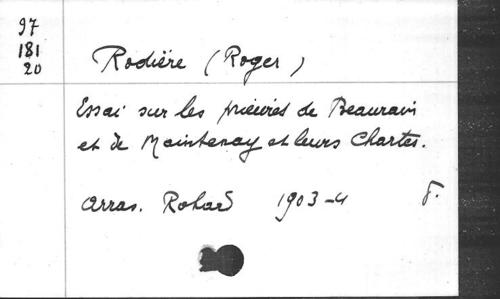 97
181
20
Rodière (Roger)
Essai sur les prieurés de Beaurain
et de Maintenay et leurs Chartes.
Arras. Rohard 1903-4 8.